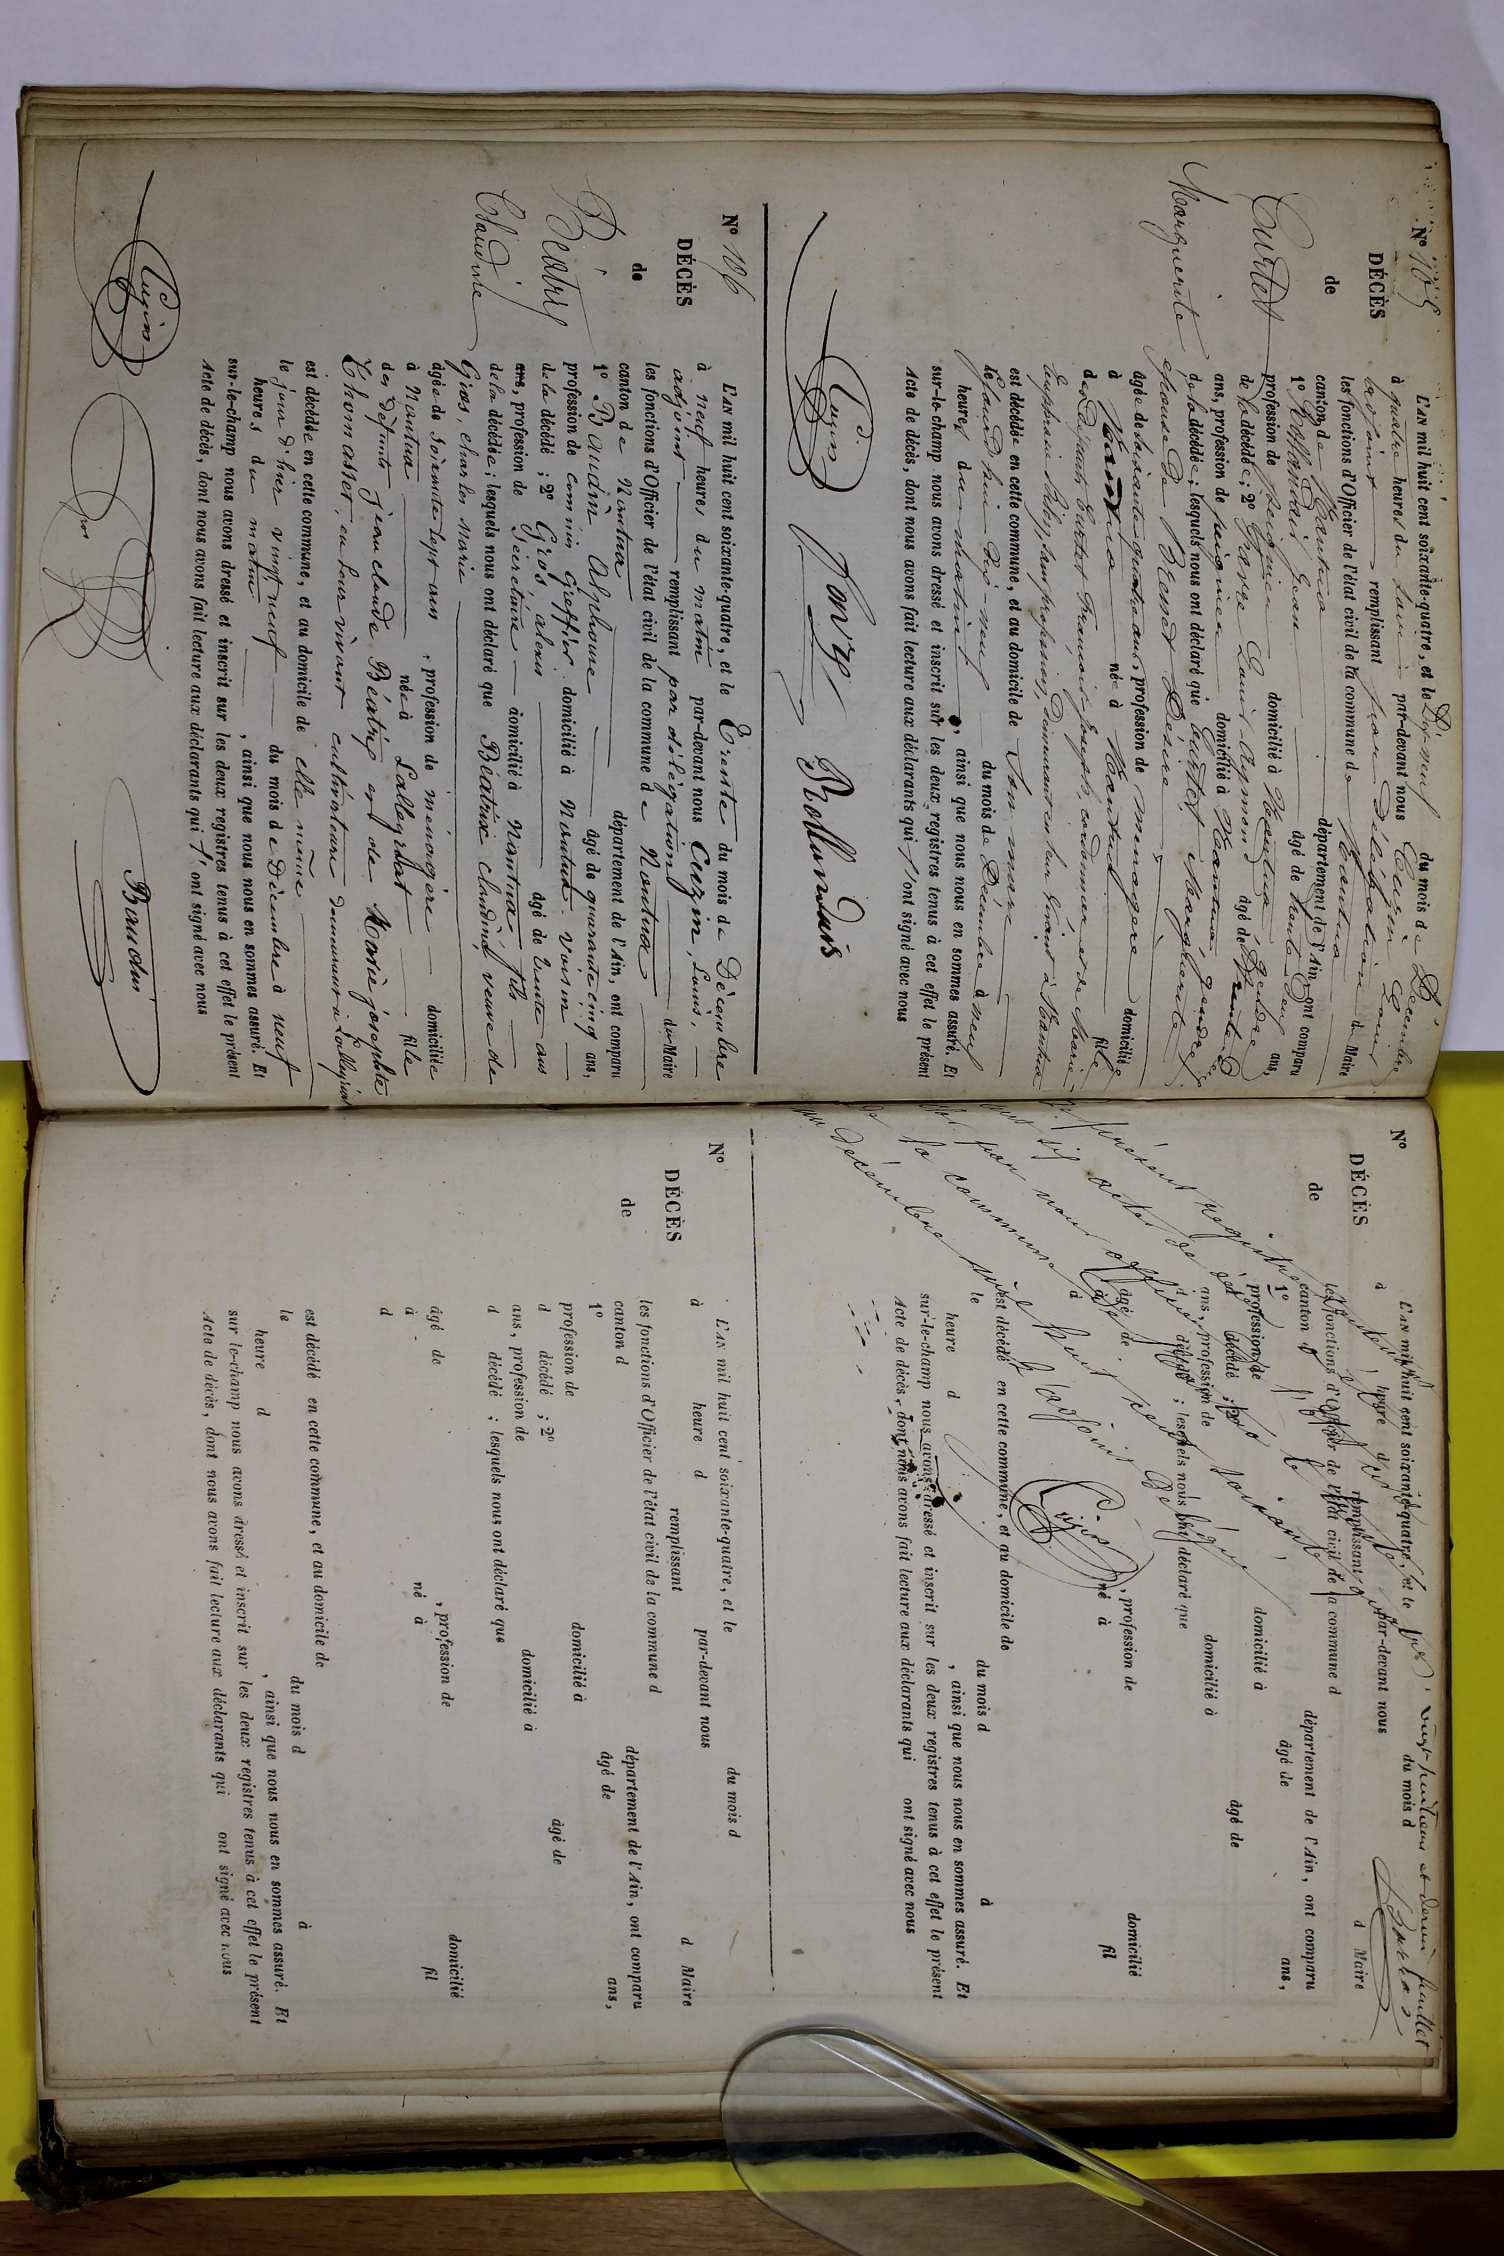 N° 105
DÉCÈS
de
Curtet
Marguerite
L'AN mil huit cent soixante-quatre, et le Dix neuf du mois de Décembre
à quatre heures du soir par-devant nous Cuzin Louis
adjoint remplissant par Délégation du Maire
les fonctions d'Officier de l'état civil de la commune de Nantua
canton de Nantua département de l'Ain, ont comparu
1° Rollandais Jean âgé de trente deux ans,
profession de domicilié à Nantua, gendre
de la décédée; 2° Louis âgé de trente
ans, profession de domicilié à Nantua, gendre
de la décédée; lesquels nous ont déclaré que Curtet Marguerite
épouse de
âgée de soixante quatre ans, profession de ménagère domiciliée
à Nantua née à Nantua fille
des défunts Curtet François Joseph, cordonnier, et de Marie
sans profession, demeurant en leur vivant à Nantua
est décédée en cette commune, et au domicile de son mari
le jourd'hui dix-neuf du mois de Décembre à neuf
heures du matin, ainsi que nous nous en sommes assuré. Et
sur-le-champ nous avons dressé et inscrit sur les deux registres tenus à cet effet le présent
Acte de décès, dont nous avons fait lecture aux déclarants qui l'ont signé avec nous
Cuzin Rollandais
N° 106
DÉCÈS
de
Béatrix
Claudine
L'AN mil huit cent soixante-quatre, et le Trente du mois de Décembre
à neuf heures du matin par-devant nous Cuzin, Louis,
adjoint remplissant par délégation du Maire
les fonctions d'Officier de l'état civil de la commune de Nantua
canton de Nantua département de l'Ain, ont comparu
1° Baudin Alphonse âgé de quarante cinq ans,
profession de commis Greffier domicilié à Nantua voisin
de la décédé; 2° Gros, alexis âgé de trente ans
ans, profession de domicilié à Nantua, fils
de la décédée; lesquels nous ont déclaré que Béatrix Claudine, veuve de
Gros, charles Marie
âgée de soixante sept ans, profession de ménagère domiciliée
à Nantua née à Lalleyriat fille
des défunts Jean claude Béatrix et de Marie josephte
Thomasset, en leur vivant cultivateurs demeurant à Lalleyriat
est décédée en cette commune, et au domicile de elle même
le jour d'hier vingt neuf du mois de Décembre à neuf
heures du matin, ainsi que nous nous en sommes assuré. Et
sur-le-champ nous avons dressé et inscrit sur les deux registres tenus à cet effet le présent
Acte de décès, dont nous avons fait lecture aux déclarants qui l'ont signé avec nous
Cuzin Baudin
vingt-huitième et dernier feuillet
N°
DÉCÈS
de
L'AN mil huit cent soixante-quatre, et le du mois d
à heure d par-devant nous
remplissant d Maire
les fonctions d'Officier de l'état civil de la commune d
canton d département de l'Ain, ont comparu
1° âgé de ans,
profession de domicilié à
d décédé; 2° âgé de
ans, profession de domicilié à
d décédé; lesquels nous ont déclaré que
âgé de , profession de domicilié
à né à fil
est décédé en cette commune, et au domicile de
le du mois d à
heure d , ainsi que nous nous en sommes assuré. Et
sur-le-champ nous avons dressé et inscrit sur les deux registres tenus à cet effet le présent
Acte de décès, dont nous avons fait lecture aux déclarants qui ont signé avec nous
Le présent registre
cent six actes de décès
par nous officier
de la commune
décembre mil huit cent soixante
l'adjoint délégué
Cuzin
N°
DÉCÈS
de
L'AN mil huit cent soixante-quatre, et le du mois d
à heure d par-devant nous
remplissant d Maire
les fonctions d'Officier de l'état civil de la commune d
canton d département de l'Ain, ont comparu
1° âgé de ans,
profession de domicilié à
d décédé; 2° âgé de
ans, profession de domicilié à
d décédé; lesquels nous ont déclaré que
âgé de , profession de domicilié
à né à fil
d
est décédé en cette commune, et au domicile de
le du mois d à
heure d , ainsi que nous nous en sommes assuré. Et
sur le-champ nous avons dressé et inscrit sur les deux registres tenus à cet effet le présent
Acte de décès, dont nous avons fait lecture aux déclarants qui ont signé avec nous